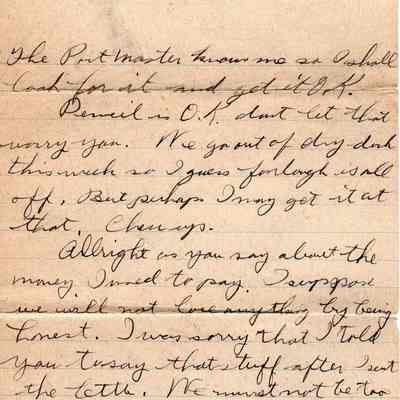 The Post Master knows me so I shall
look for it and get it O.K.
Pencil is O.K. dont let that
worry you. We go out of dry-dock
this week so I guess furlough is all
off. But perhaps I may get it at
that. Cheer up.
Allright as you say about the
money I need to pay. I suppose
we will not lose anything by being
honest. I was sorry that I told
you to say that stuff after I sent
the letter. We must not be too